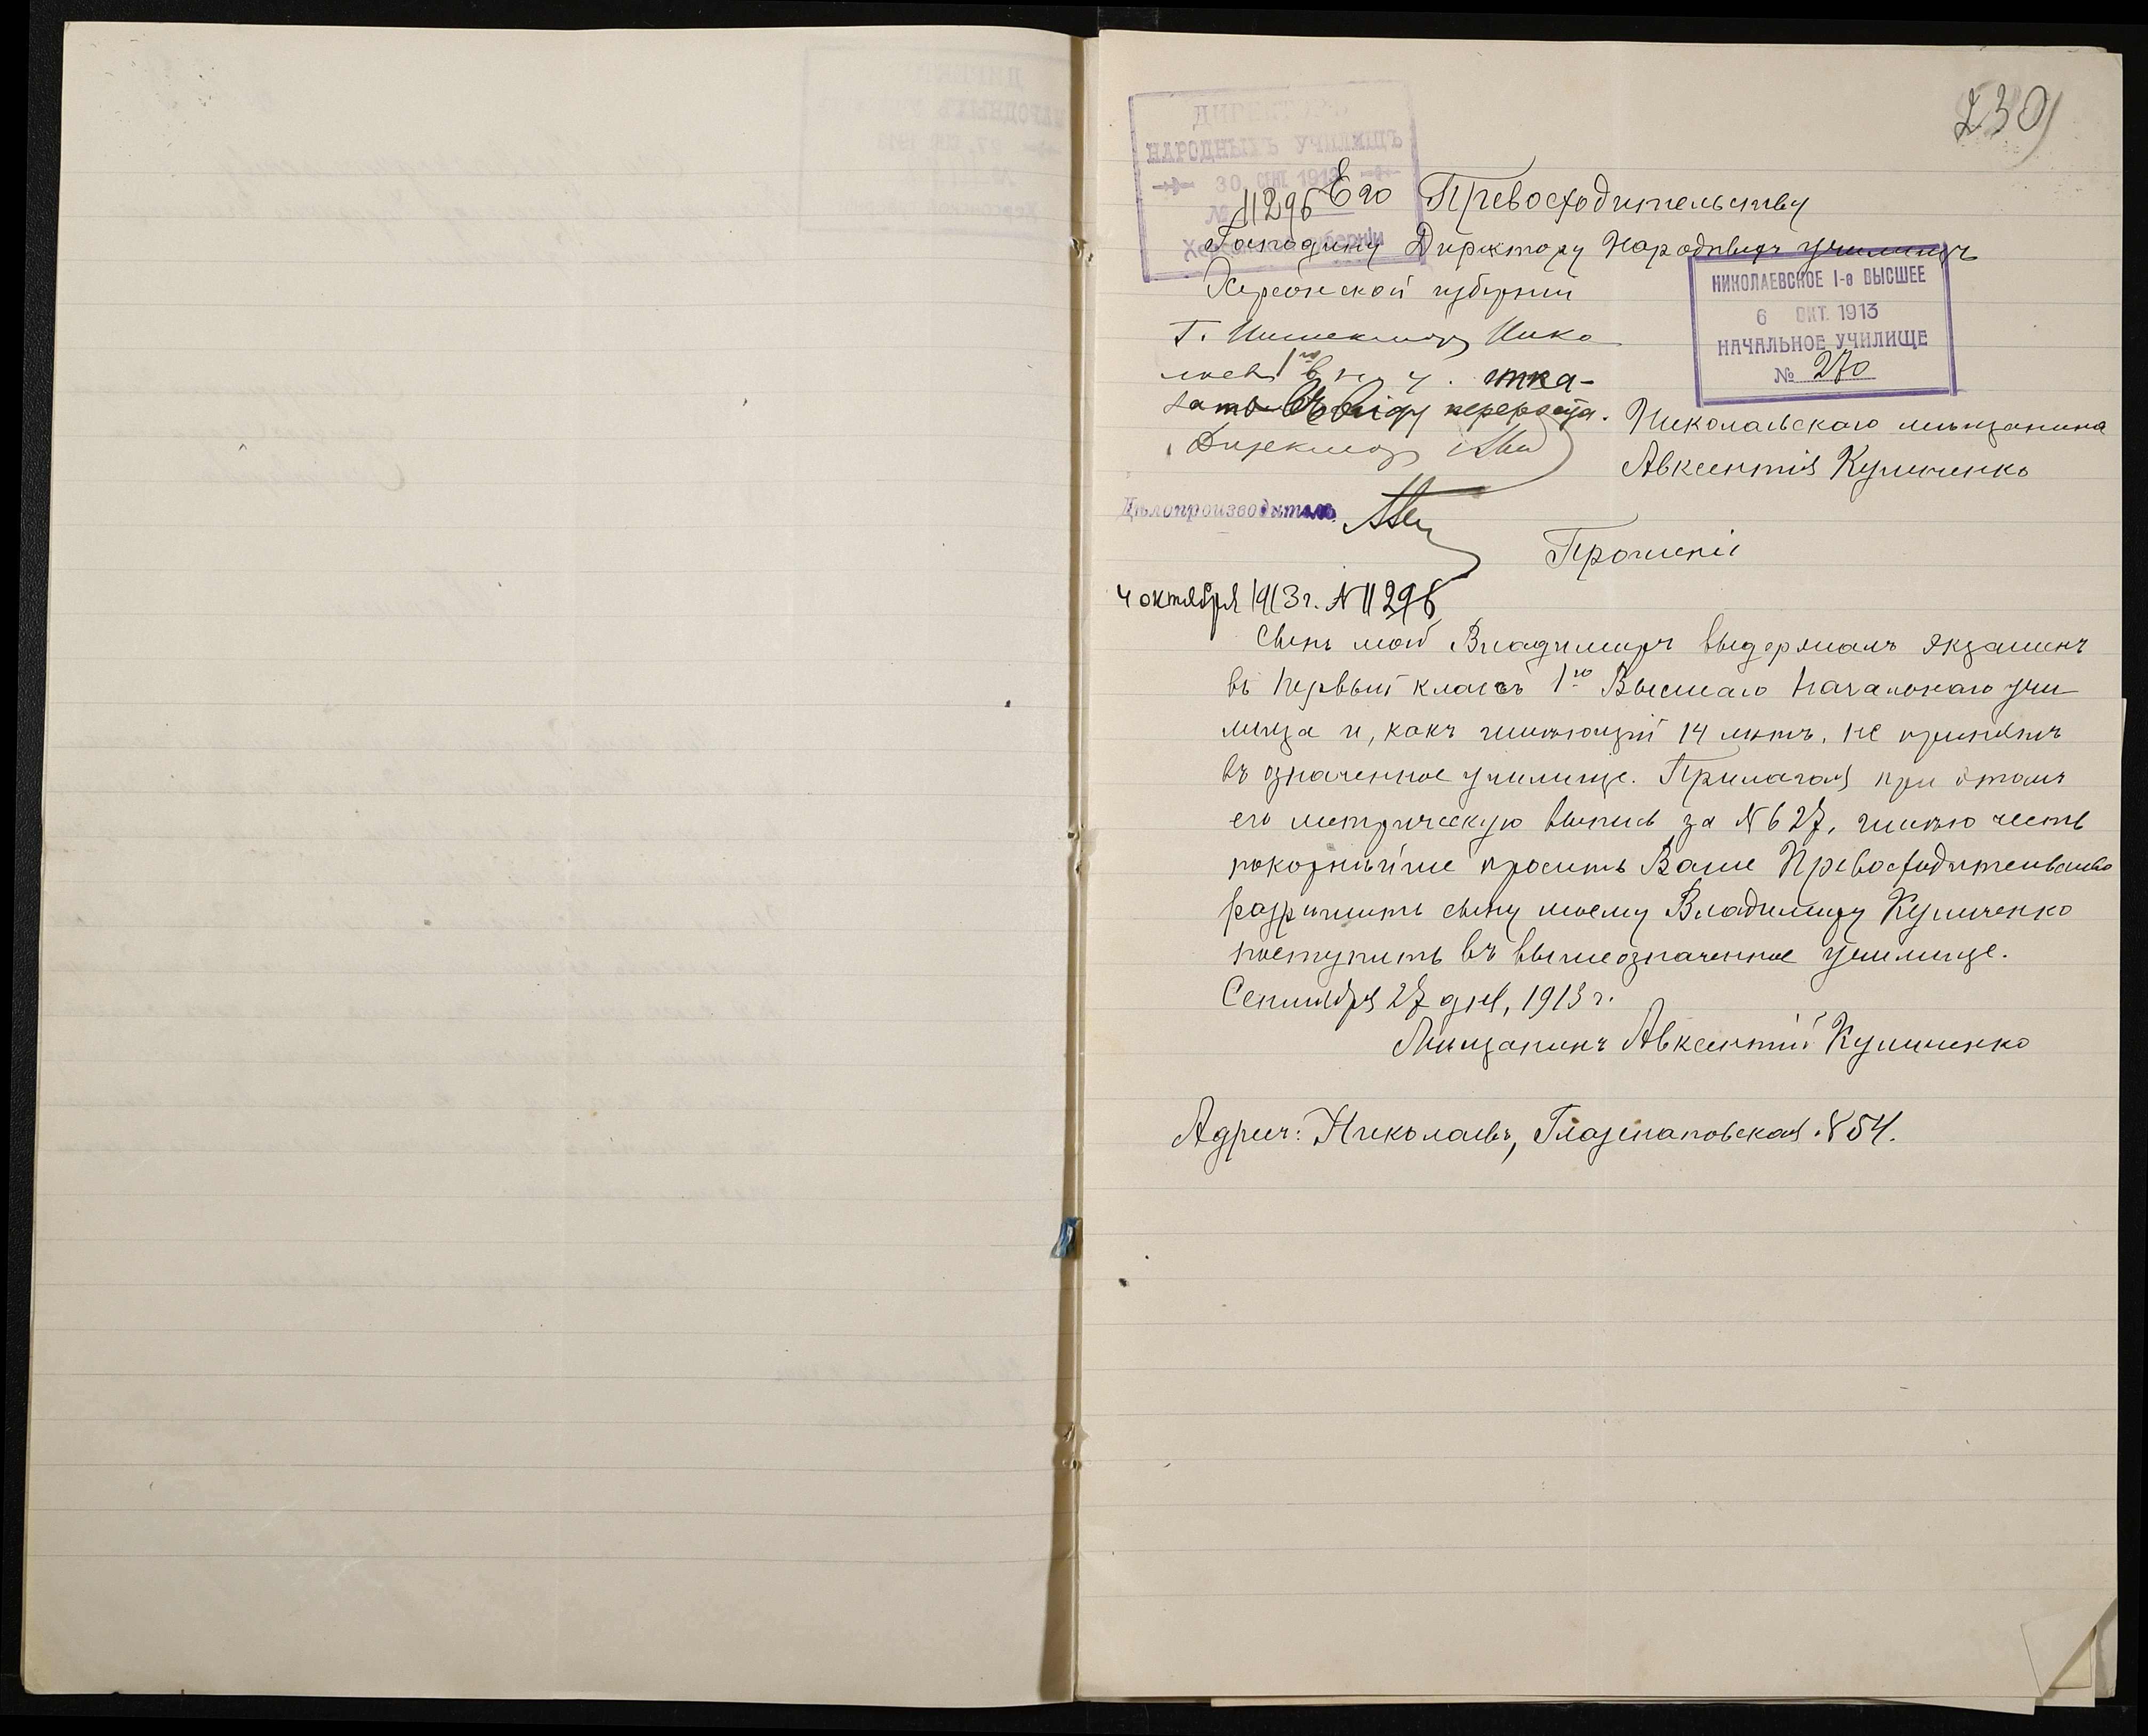 230
ДИРЕКТОРЪ
НАРОДНЫХЪ УЧИЛИЩЪ
30 СЕН 1913
№ 11296
Херсонской губерніи
Его Превосходительству
Господину Директору Народныхъ училищъ
Херсонской губерніи
НИКОЛАЕВСКОЕ I-е ВЫСШЕЕ
6 ОКТ. 1913
НАЧАЛЬНОЕ УЧИЛИЩЕ
№ 270
Г. Инспектору Нико
лаев 1го в. н. у. отка-
зать въ виду перероста.
Директоръ
Николаевскаго мѣщанина
Авксентія Кулиненко
Дѣлопроизводитель
Прошеніе
4 октября 1913 г. № 11296
Сынъ мой Владимиръ выдержалъ экзаменъ
въ первый классъ 1го Высшаго Начальнаго учи
лища и, какъ имѣющій 14 лѣтъ, не принятъ
въ означенное училище. Прилагая при этомъ
его метрическую выпись за № 627, имѣю честь
покорнѣйше просить Ваше Превосходительство
разрѣшить сыну моему Владимиру
поступить въ вышеозначенное училище.
Сентября 27 дня, 1913 г.
Мѣщанинъ Авксентій
Адресъ: Николаевъ, Глазенаповская № 54.